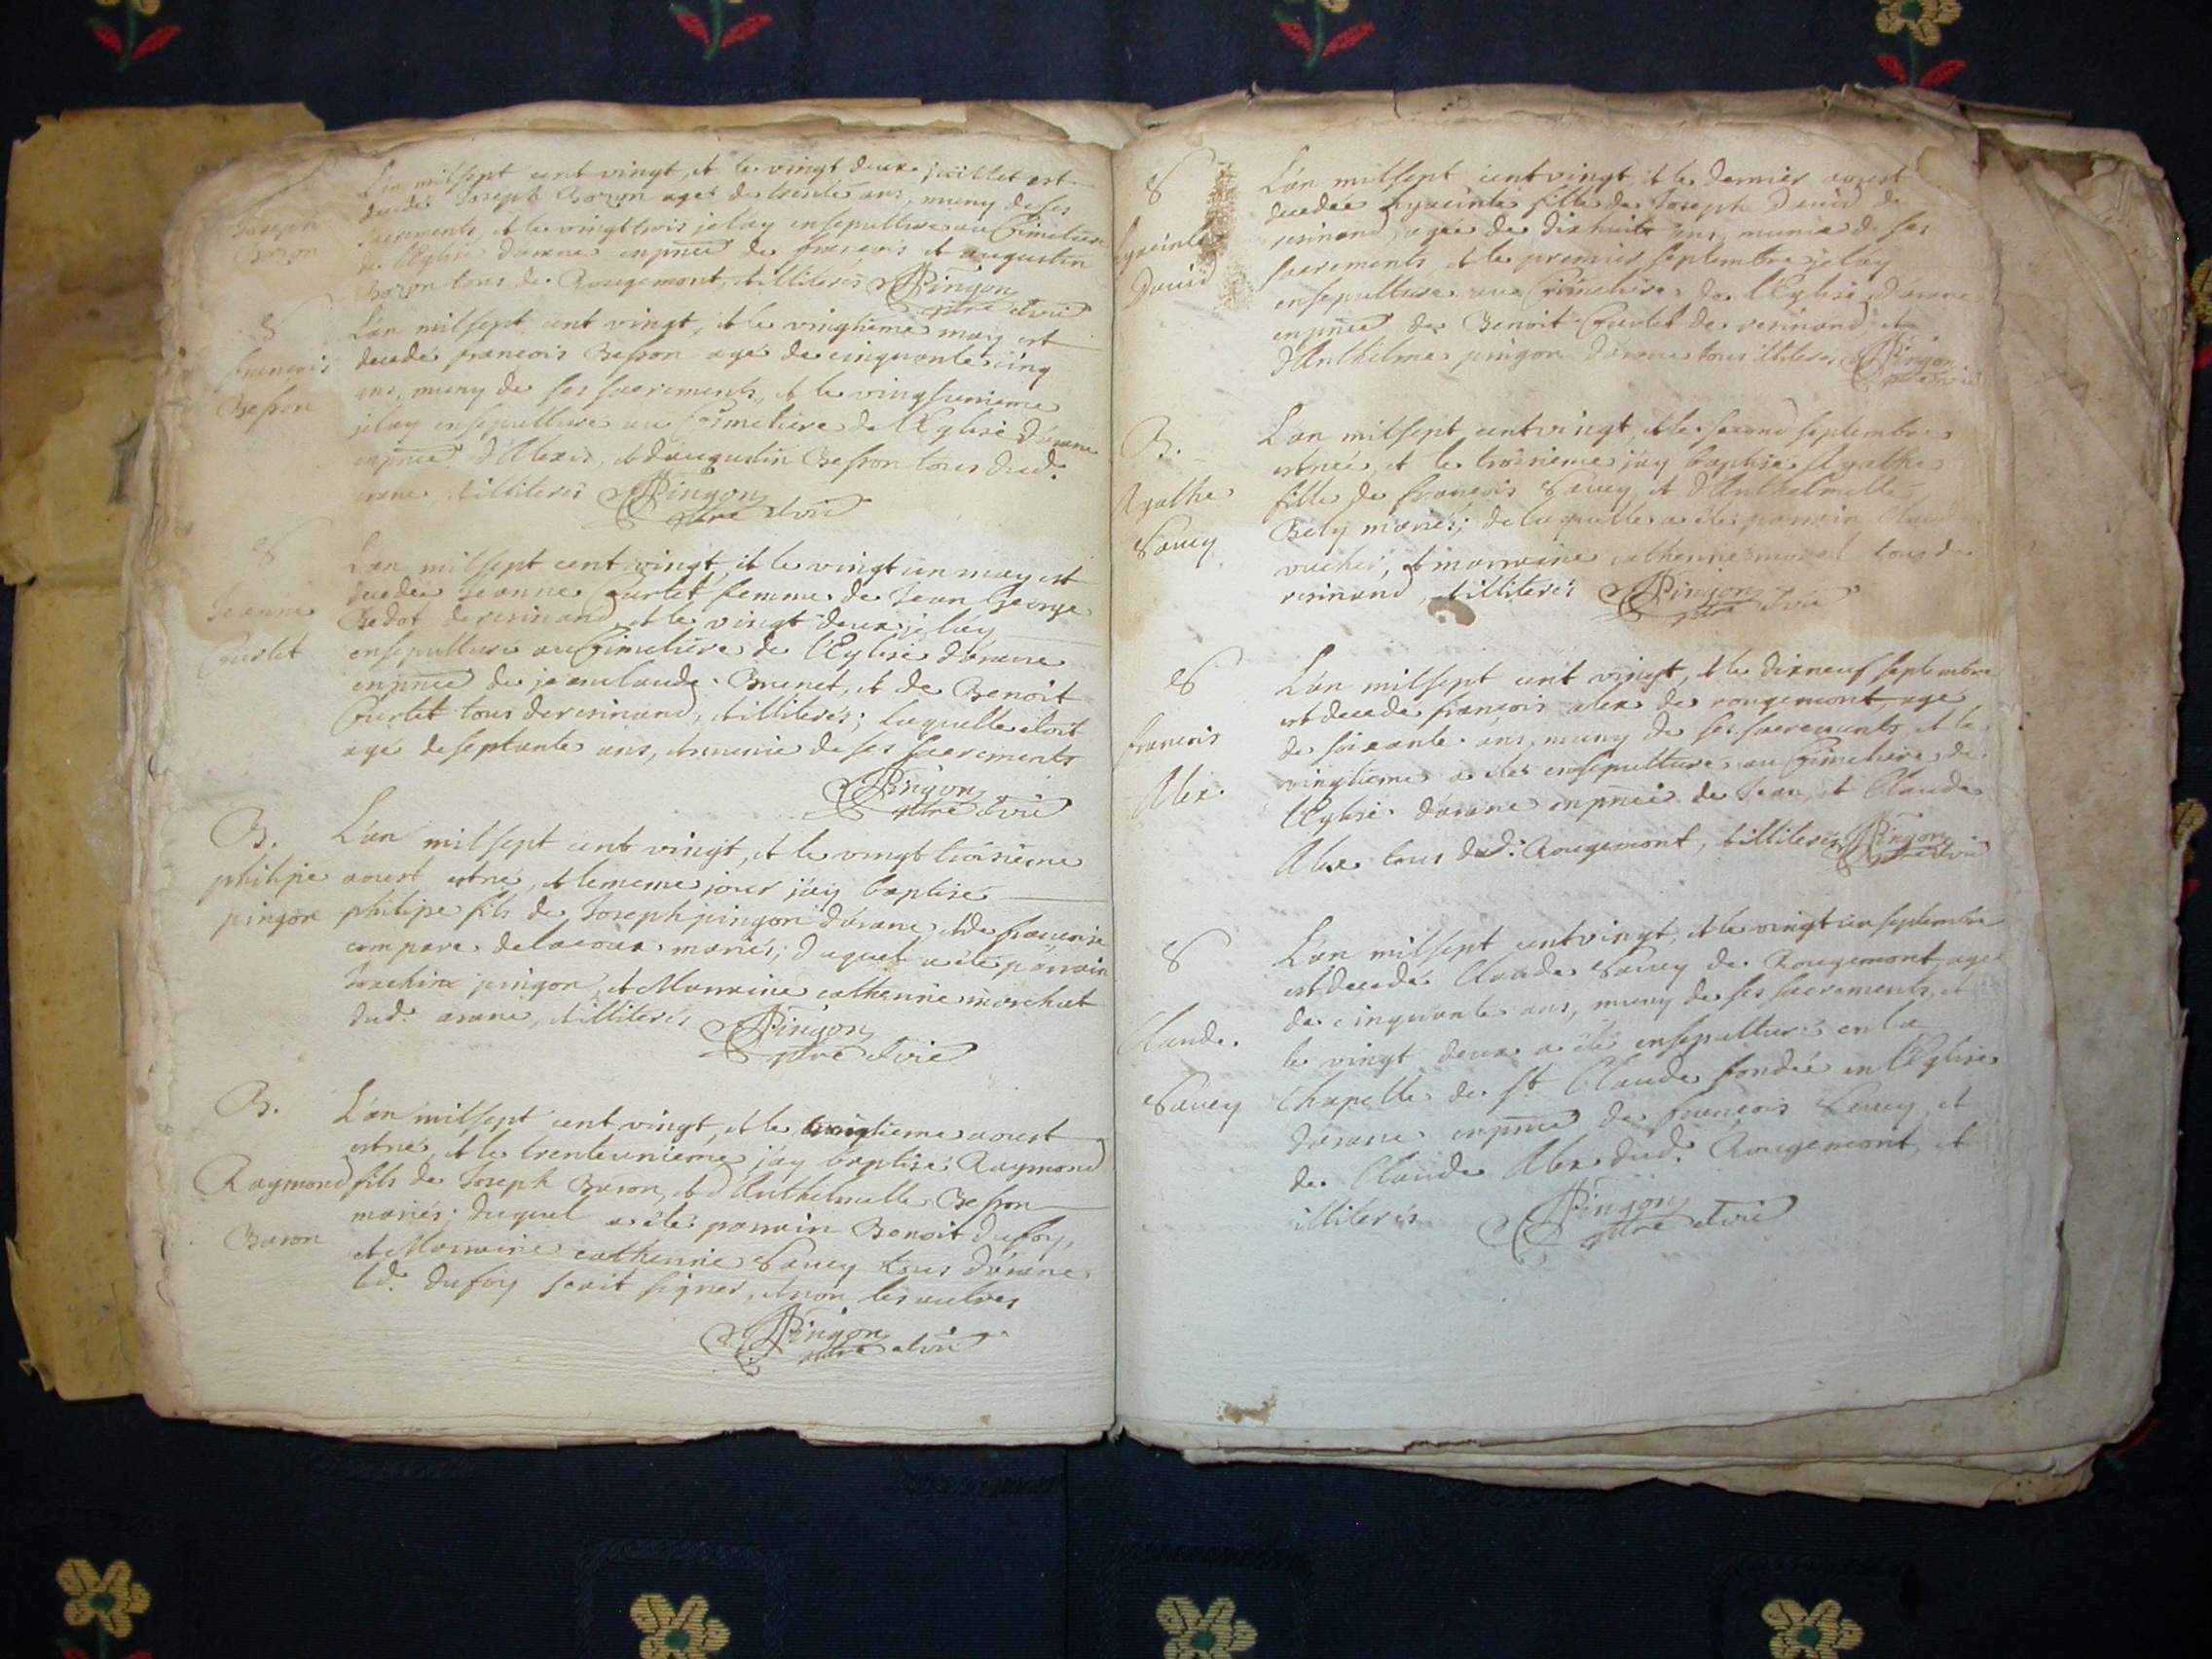 L'an milsept cent vingt, et le vingt deux juillet est
decedé Joseph Bozon agé de trente ans, muny de ses
Joseph sacrements, et le vingt trois je l'ay ensepulturé au Cimetiere
Bozon de l'Eglise d'arane en pnce de françois et augustin
Bozon tous de Rougemont, et illiterés Pingon
ptre et vic
S L'an milsept cent vingt, et le vingtieme may est
françois decedé françois Besson agé de cinquante cinq
Besson ans, muny de ses sacrements, et le vingtunieme
je l'ay ensepulturé au Cimetiere de l'Eglise d'arane
en pnce d'Alexis, et d'augustin Besson tous dud.
arane, et illiterés Pingon
ptre et vic
S L'an milsept cent vingt, et le vingt un may est
Jeanne decedée Jeanne Curtet femme de Jean George
Bedot de resinand, et le vingt deux je l'ay
Curtet ensepulturé au Cimetiere de l'Eglise d'arane
en pnce de jeanclaude Brunet, et de Benoit
Curtet tous de resinand, et illiterés; laquelle etoit
agé de septante ans, et munie de ses sacrements
Pingon
ptre et vic
B. L'an milsept cent vingt, et le vingt troisieme
philipe aoust est né, et le meme jour j'ay baptisé
pingon philipe fils de Joseph pingon d'arane, et de françoise
compare delacoux mariés; duquel a été parrain
Joachim pingon, et Marraine catherine marchat
dud. arane, et illiterés Pingon
ptre et vic
B. L'an milsept cent vingt, et le vingtieme aoust
est né, et le trenteunieme j'ay baptisé Raymond
Raymond fils de Joseph Baron, et d'Anthelmelle Besson
mariés; duquel a été parrain Benoit dufoy,
Baron et Marraine catherine Savey tous d'arane
led. dufoy scait signer, et non les autres
Pingon
ptre et vic
S L'an milsept cent vingt, et le dernier aoust
decedée hyacinte fille de Joseph David de
hyacinte resinand, agée de dixhuit ans, munie de ses
David sacrements, et le premier septembre je l'ay
ensepulturé au Cimetiere de l'Eglise d'arane
en pnce de Benoit Curtet de resinand, et
d'Anthelme pingon d'arane tous illiteres Pingon
ptre et vic
B. L'an milsept cent vingt, et le second septembre
est née, et le troisieme j'ay baptisé Agathe
Agathe fille de françois Savey, et d'Anthelmelle
Savey Bely mariés; de laquelle a été parrain Claude
vuchet, et marraine catherine morel tous de
resinand, et illiterés Pingon
ptre et vic
S L'an milsept cent vingt, et le dixneuf septembre
est decedé françois alex de rougemont agé
françois de soixante ans, muny de ses sacrements, et le
Alex vingtieme a été ensepulturé au Cimetiere de
l'Eglise d'arane en pnce de Jean, et Claude
Alex tous dud. Rougemont, et illiterés Pingon
ptre et vic
S L'an milsept cent vingt, et le vingt un septembre
est decedé Claude Savey de Rougemont, agé
de cinquante ans, muny de ses sacrements, et
Claude le vingt deux a été ensepulturé en la
Savey Chapelle de St Claude fondée en l'Eglise
d'arane en pnce de françois Savey, et
de Claude Alex dud. Rougemont, et
illiterés Pingon
ptre et vic